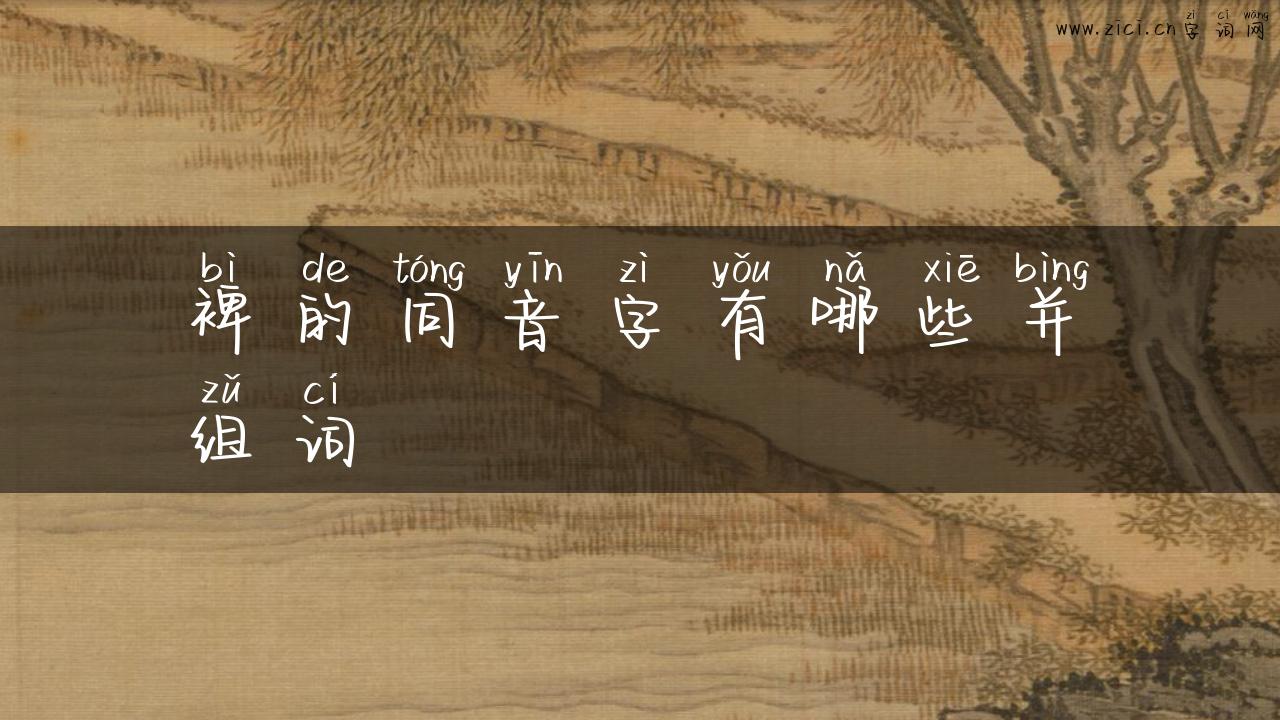 zì cí wǎng
www.zici.cn字词网
bì de tóng yīn zì yǒu nǎ xiē bìng
裨的同音字有哪些并
zǔ cí
组词